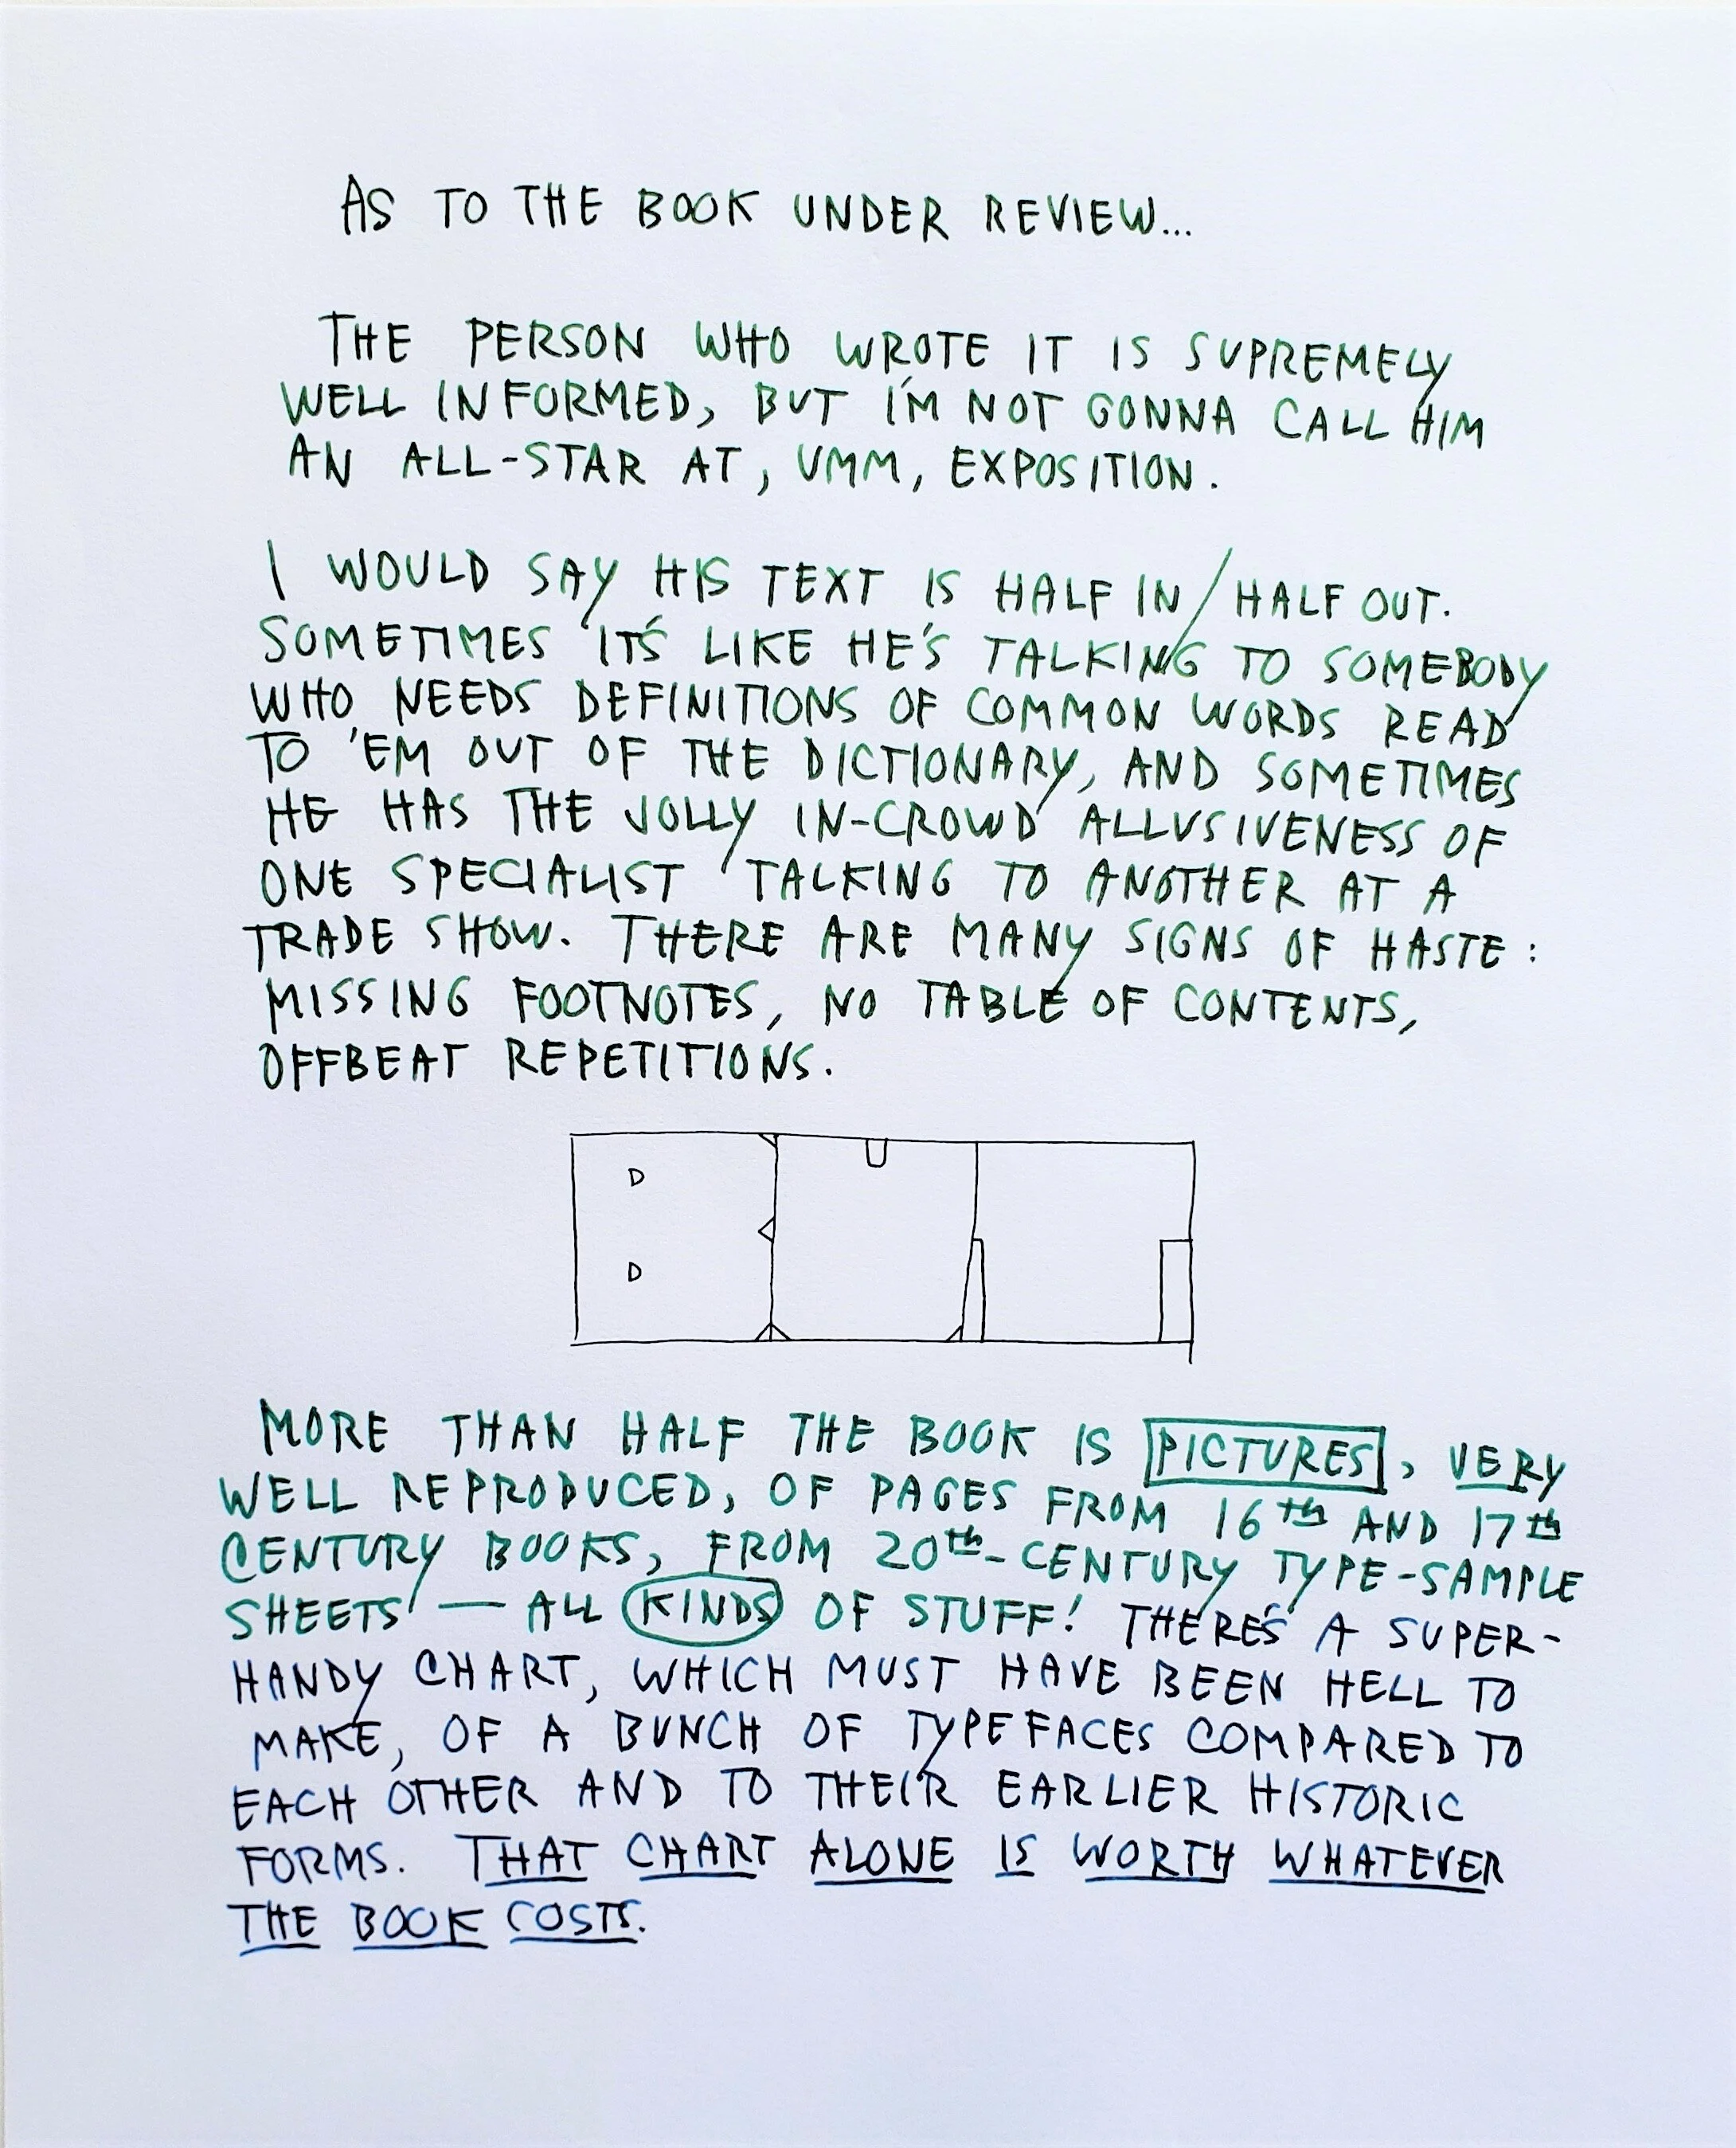 AS TO THE BOOK UNDER REVIEW...
THE PERSON WHO WROTE IT IS SUPREMELY
WELL INFORMED, BUT I'M NOT GONNA CALL HIM
AN ALL-STAR AT, UMM, EXPOSITION.
I WOULD SAY HIS TEXT IS HALF IN/HALF OUT.
SOMETIMES IT'S LIKE HE'S TALKING TO SOMEBODY
WHO NEEDS DEFINITIONS OF COMMON WORDS READ
TO 'EM OUT OF THE DICTIONARY, AND SOMETIMES
HE HAS THE JOLLY IN-CROWD ALLUSIVENESS OF
ONE SPECIALIST TALKING TO ANOTHER AT A
TRADE SHOW. THERE ARE MANY SIGNS OF HASTE:
MISSING FOOTNOTES, NO TABLE OF CONTENTS,
OFFBEAT REPETITIONS.
D
D
MORE THAN HALF THE BOOK IS PICTURES, VERY
WELL REPRODUCED, OF PAGES FROM 16th AND 17th
CENTURY BOOKS, FROM 20th-CENTURY TYPE-SAMPLE
SHEETS — ALL KINDS OF STUFF! THERE'S A SUPER-
HANDY CHART, WHICH MUST HAVE BEEN HELL TO
MAKE, OF A BUNCH OF TYPEFACES COMPARED TO
EACH OTHER AND TO THEIR EARLIER HISTORIC
FORMS. THAT CHART ALONE IS WORTH WHATEVER
THE BOOK COSTS.